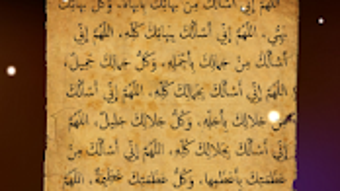 اَللّٰهُمَّ اِنّي اَسْاَلُكَ مِنْ بَهائِكَ بِاَبْهاهُ، وَكُلُّ بَهائِكَ
بَهِيٌّ، اَللّٰهُمَّ اِنّي اَسْاَلُكَ بِبَهائِكَ كُلِّهِ، اَللّٰهُمَّ اِنّي
اَسْاَلُكَ مِنْ جَمالِكَ بِاَجْمَلِهِ، وَكُلُّ جَمالِكَ جَميلٌ،
اَللّٰهُمَّ اِنّي اَسْاَلُكَ بِجَمالِكَ كُلِّهِ، اَللّٰهُمَّ اِنّي اَسْاَلُكَ
مِنْ جَلالِكَ بِاَجَلِّهِ، وَكُلُّ جَلالِكَ جَليلٌ، اَللّٰهُمَّ
اِنّي اَسْاَلُكَ بِجَلالِكَ كُلِّهِ، اَللّٰهُمَّ اِنّي اَسْاَلُكَ مِنْ
عَظَمَتِكَ بِاَعْظَمِها، وَكُلُّ عَظَمَتِكَ عَظيمَةٌ، اَللّٰهُمَّ